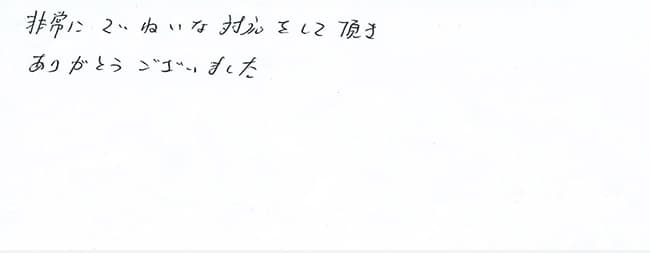 非常にていねいな対応をして頂き
ありがとうございました